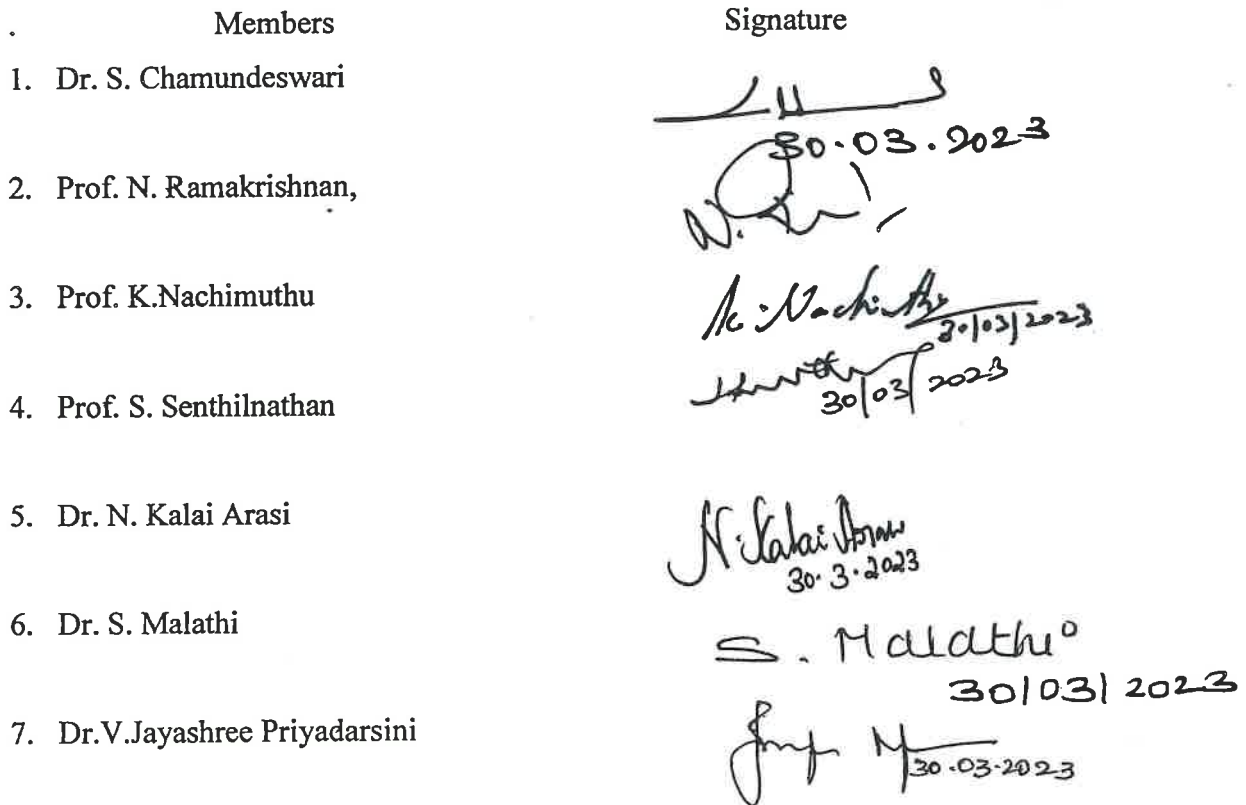 . Members Signature
1. Dr. S. Chamundeswari
30.03.2023
2. Prof. N. Ramakrishnan,
N.
3. Prof. K.Nachimuthu
30/03/2023
30/03/2023
4. Prof. S. Senthilnathan
5. Dr. N. Kalai Arasi N. Kalai Arasi
30.3.2023
6. Dr. S. Malathi S. Malathi
30/03/2023
7. Dr.V.Jayashree Priyadarsini
30.03.2023